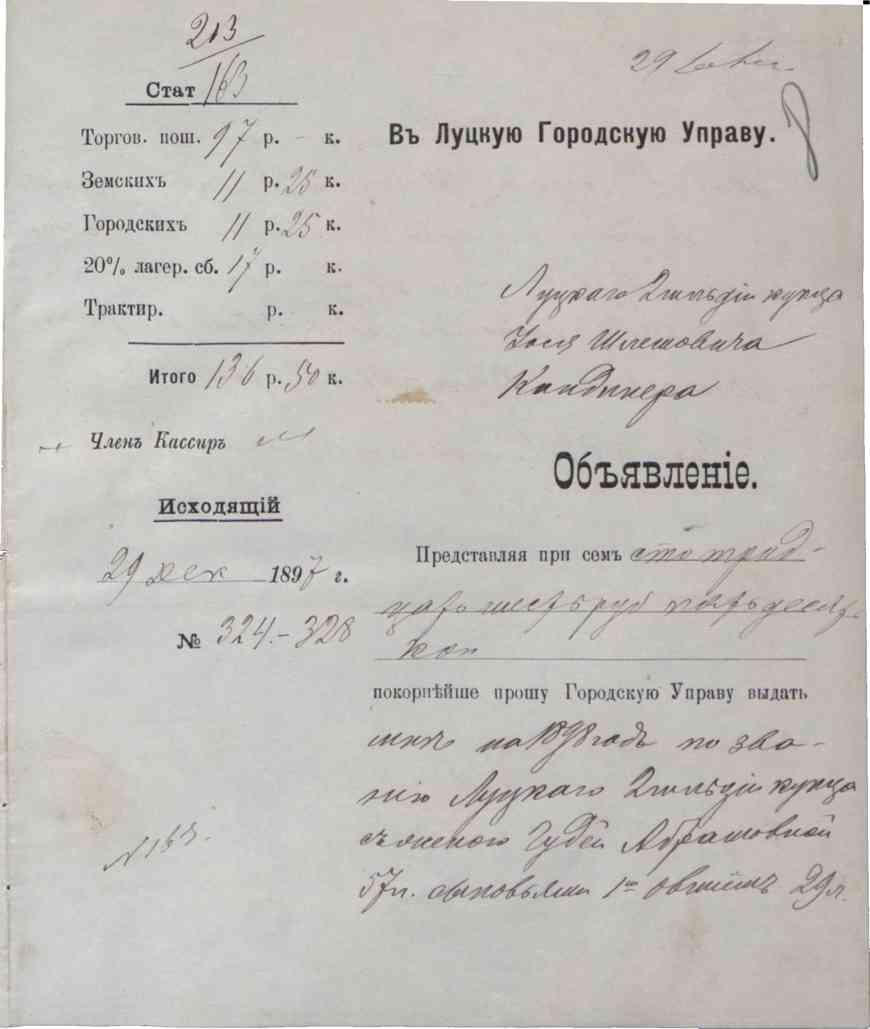 213
Стат 163
Торгов. пош. 97 р. - к.
Земскихъ 11 р. 25 к.
Городскихъ 11 р. 25 к.
20% лагер. сб. 17 р. к.
Трактир. р. к.
Итого 136 р. 50 к.
Членъ Кассиръ
Исходящій
29 дек 1897 г.
№ 324.-328
N 163.
29
Въ Луцкую Городскую Управу.
Луцкаго 2 гильдіи купца
Шлемовича
Объявленіе.
Представляя при семъ сто трид-
цать шесть руб пятьдесят
коп
покорнѣйше прошу Городскую Управу выдать
мнѣ на 1898 годъ по зва-
нію Луцкаго 2 гильдіи купца
съ женою Абрамовной
57 л. сыновьями 1го 29 л.